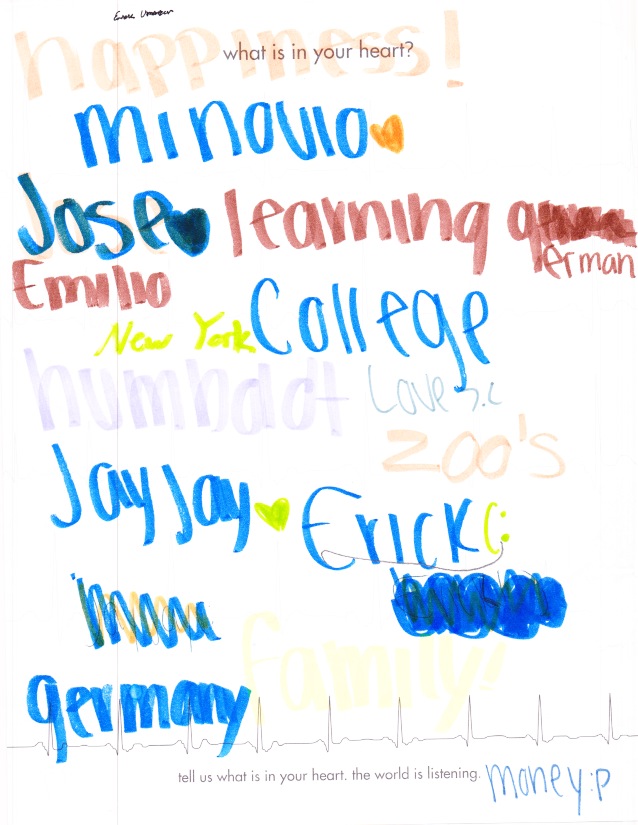 what is in your heart?
happiness!
minovio
Jose learning
german
Emilio
College
New York
humboldt
Love
zoo's
Jay Jay
Erick (:
family!
germany
tell us what is in your heart. the world is listening.
money :p